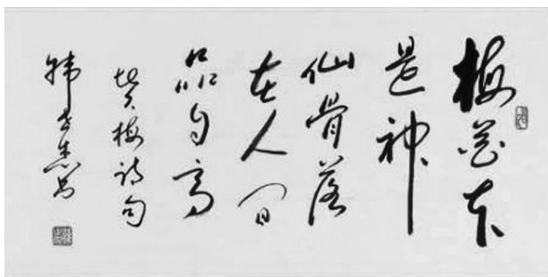 梅花本
是神
仙骨落
在人间
品自高
赞梅诗句
韩